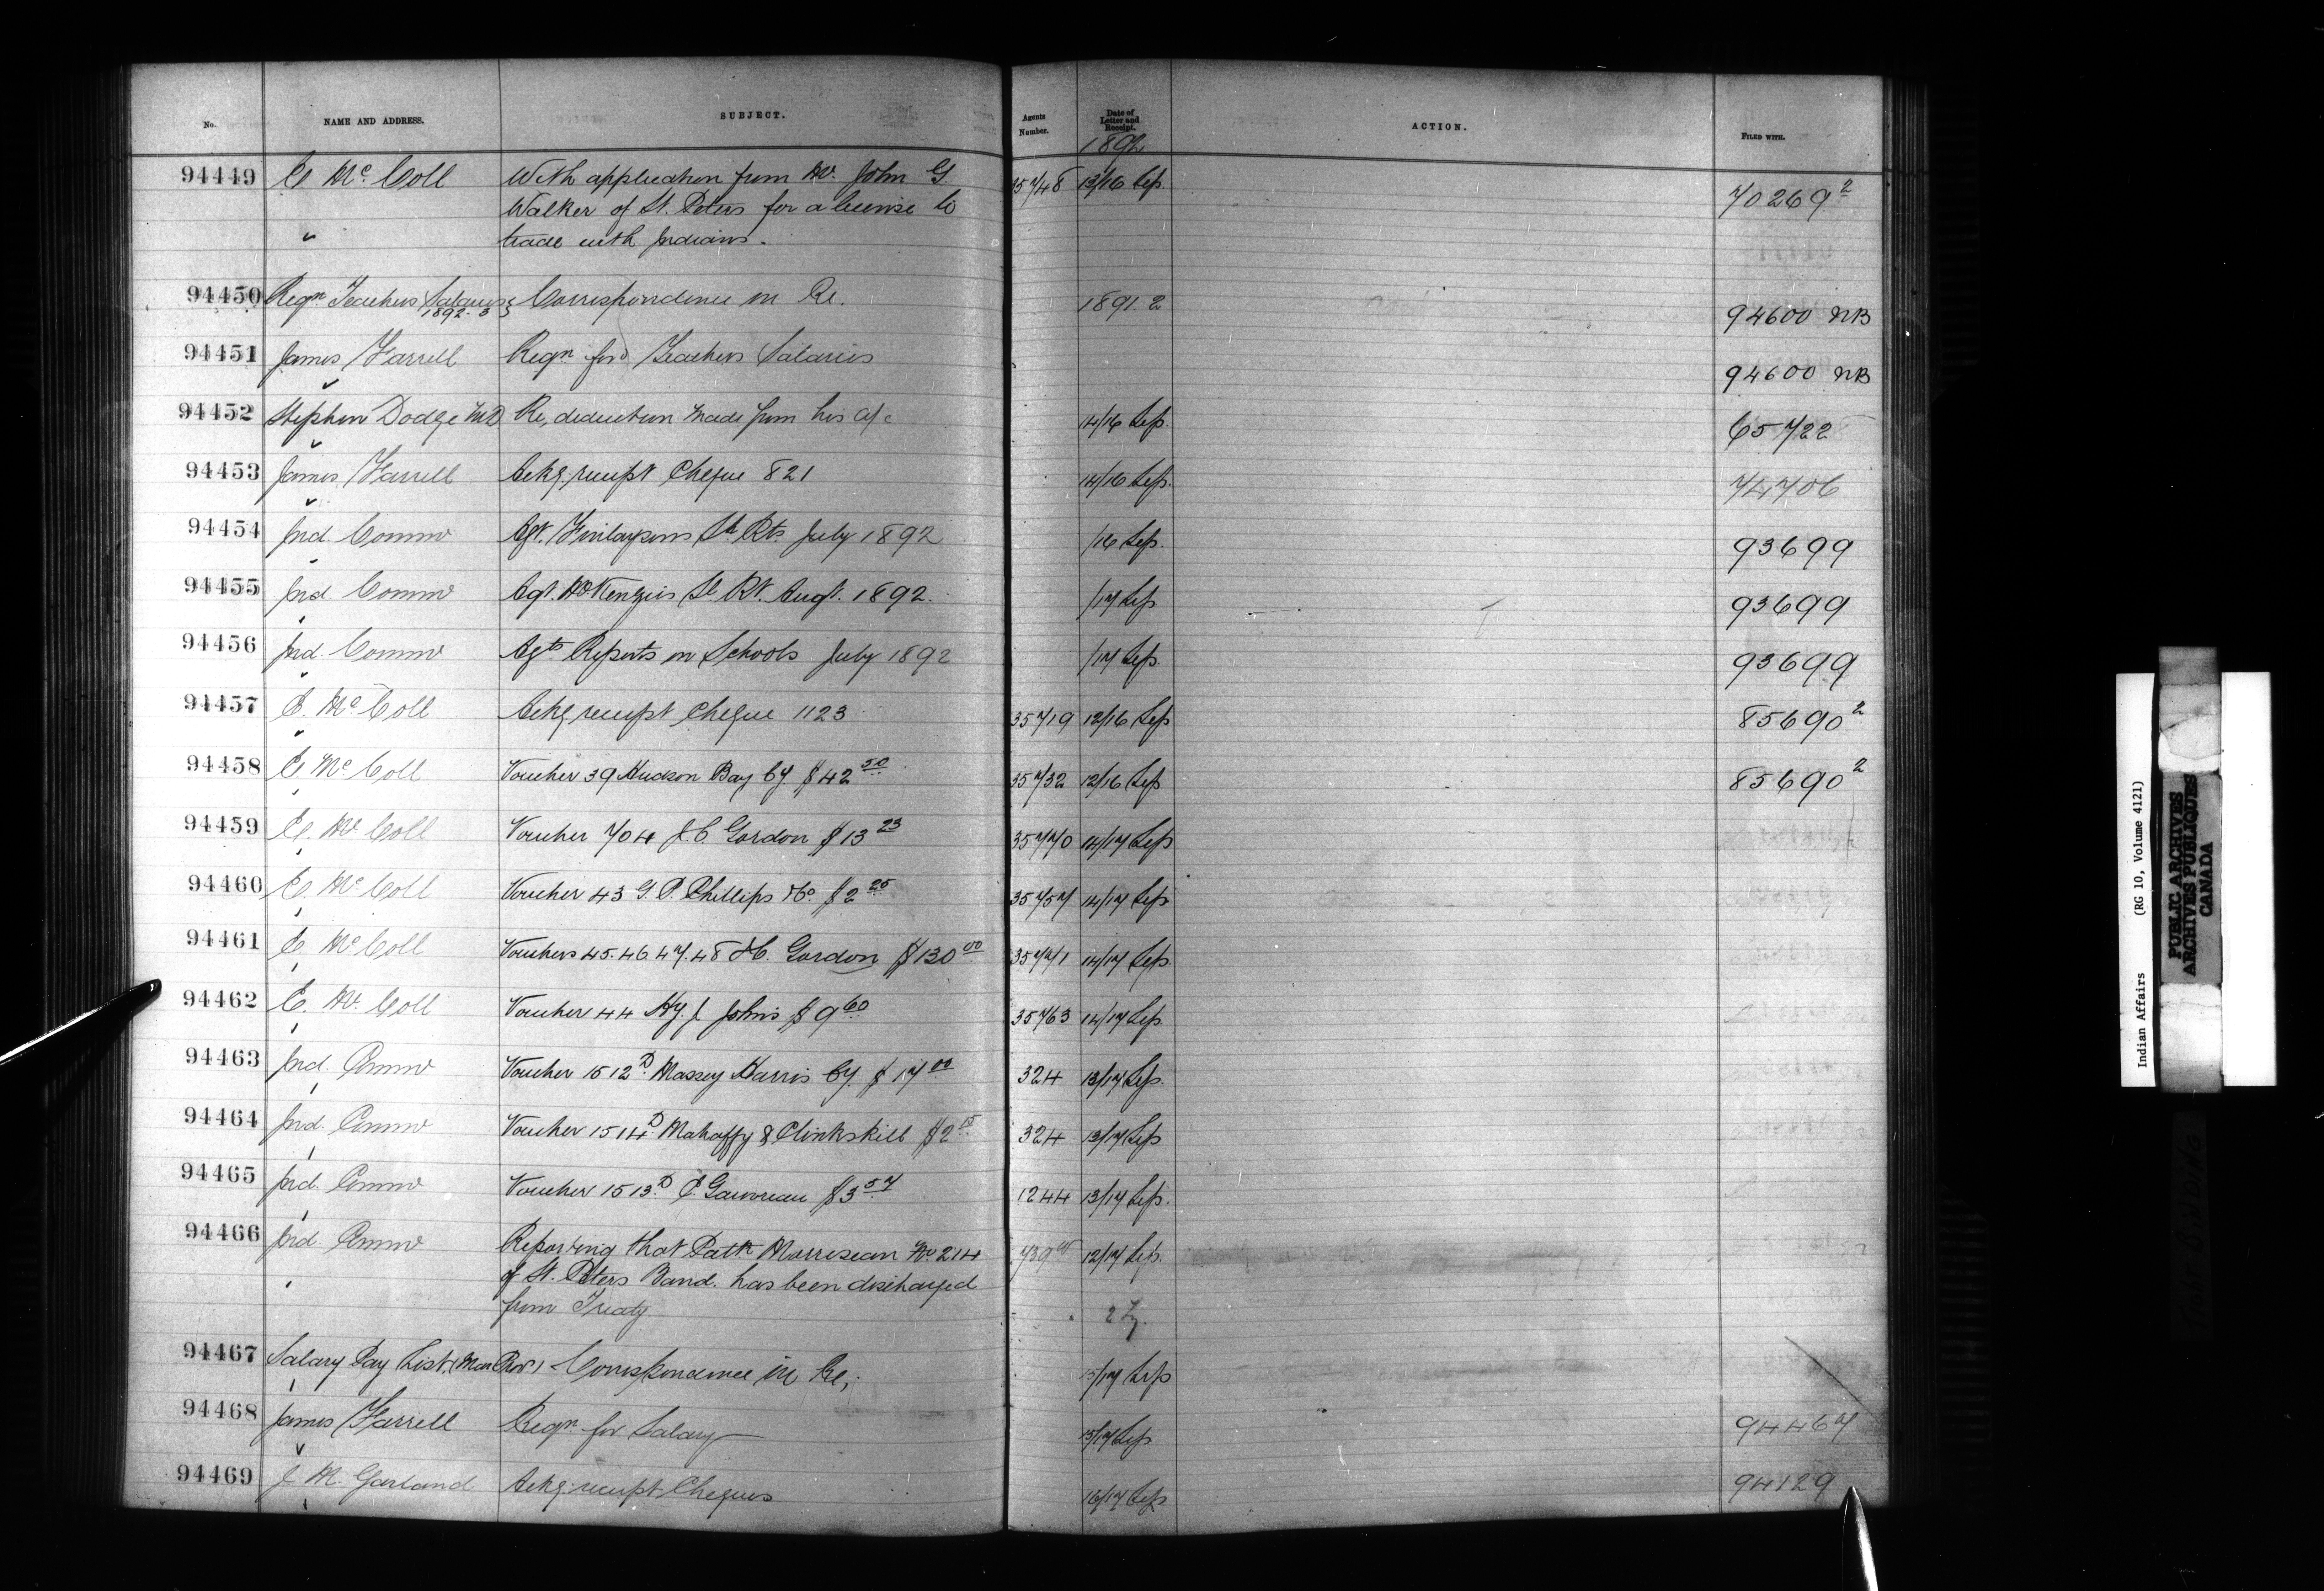 No. NAME AND ADDRESS. SUBJECT. Agents Number. Date of Letter and Receipt. ACTION. FILED WITH.
1892
94449 E Mc Coll With application from Mr. John G 35748 13/16 Sep. 70269²
Walker of St. Peters for a license to
" trade with Indians.
94450 Reqn Teachers Salaries 1892-3 Correspondence in Re. 1891.2 94600 NB
94451 James Farrell Reqn for Teachers Salaries 94600 NB
94452 Stephen Dodge MD Re, deduction made from his a/c 14/16 Sep. 65722
94453 James Farrell Ackg receipt Cheque 821 14/16 Sep. 74706
94454 Ind. Commr Agt. Finlaysons St. Rts. July 1892 /16 Sep. 93699
94455 Ind Commr Agt. McKenzies St. Rt. Augt. 1892. /17 Sep 93699
94456 Ind. Commr Agts Reports on Schools July 1892 /17 Sep. 93699
94457 E. Mc Coll Ackg receipt Cheque 1123 35719 12/16 Sep 85690²
94458 E Mc Coll Voucher 39 Hudson Bay Cy. $42 50 35732 12/16 Sep 85690²
94459 E. Mc Coll Voucher 704 J.C. Gordon $13 23 35770 14/17 Sep
94460 E. Mc Coll Voucher 43 G. P. Phillips &Co. $2 25 35757 14/17 Sep
94461 E Mc Coll Vouchers 45.46.47.48 J.C. Gordon $130 00 14/17 Sep.
94462 E. Mc. Coll Voucher 44 Hy. J. Johns $9 60 35763 14/17 Sep.
94463 Ind. Commr Voucher 1512 D. Massey Harris Cy. $17 00 324 13/17 Sep.
94464 Ind. Commr Voucher 1514 D Mahaffy & Clinkskill $2 15 324 13/17 Sep
94465 Ind. Commr Voucher 1513 D. E. Gauvreau $3 57 1244 13/17 Sep.
94466 Ind. Commr Reporting that Patk Morriseau No 214 12/17 Sep.
of St. Peters Band. has been discharged
from Treaty
94467 Salary Pay List. (Man Prov) Correspondence in Re, 15/17 Sep
94468 James Farrell Reqn. for Salary 15/17 Sep 94467
94469 J M. Garland Ackg receipt Cheques 16/17 Sep 94129
Indian Affairs (RG 10, Volume 4121)
PUBLIC ARCHIVES
ARCHIVES PUBLIQUES
CANADA